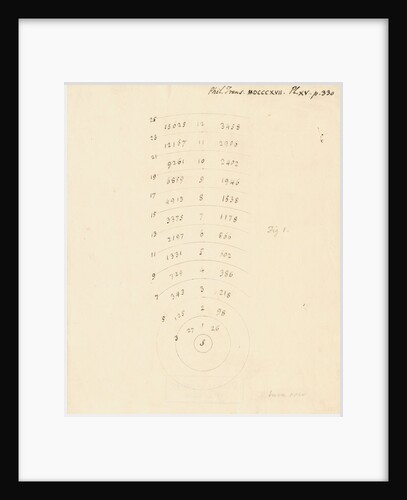 Phil. Trans. MDCCCXVII. Pl. XV. p. 330
25 15625 12 3458
23 12167 11 2906
21 9261 10 2402
19 6859 9 1946
17 4913 8 1538
15 3375 7 1178
13 2197 6 866
Fig 1.
11 1331 5 602
9 729 4 386
7 343 3 218
5 125 2 98
3 27 1 26
S